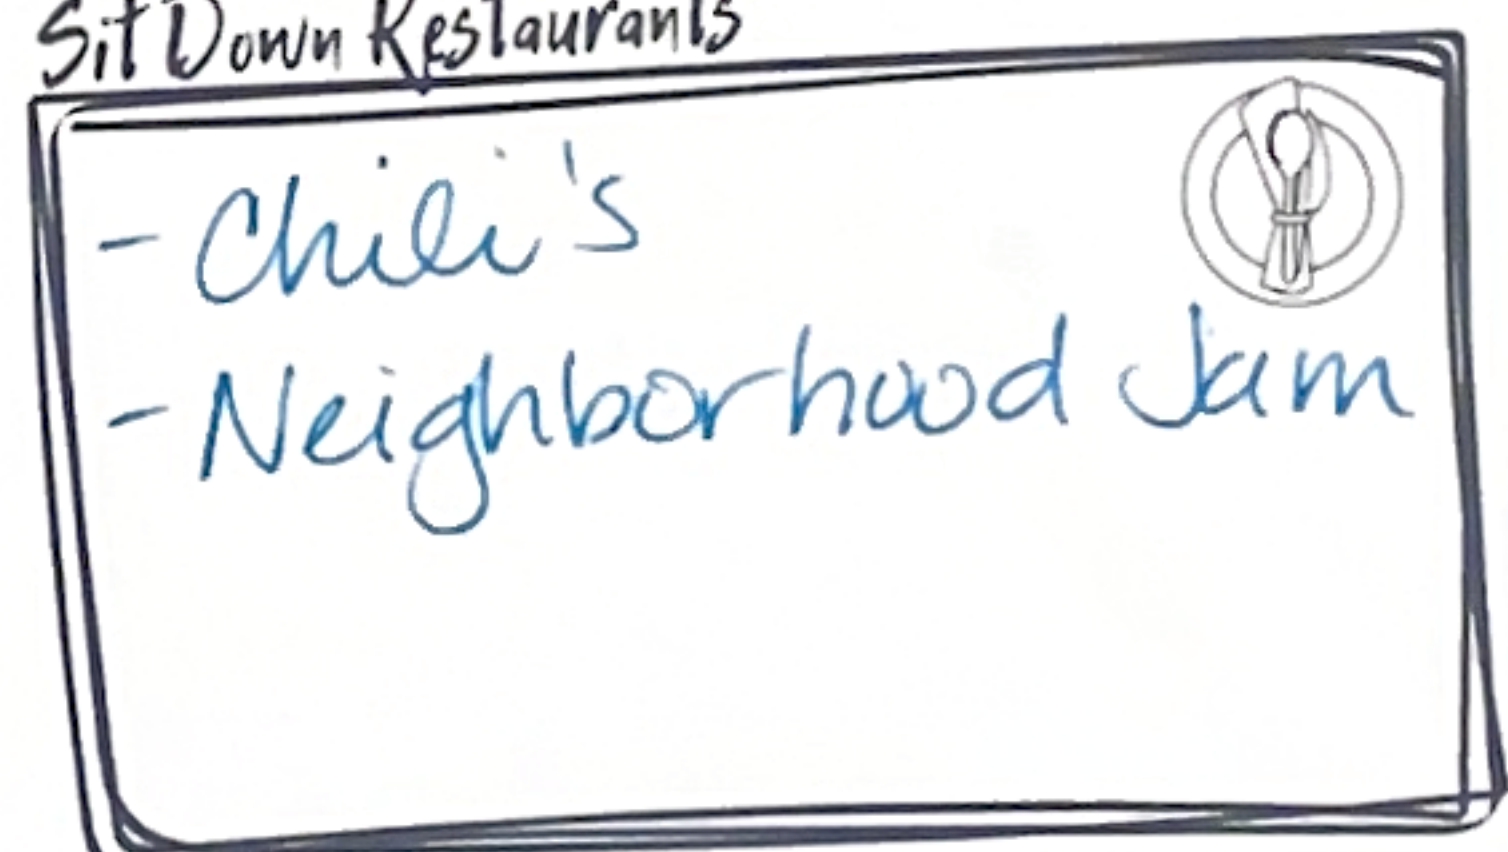 Sit Down Restaurants
- Chili's
- Neighborhood Jam